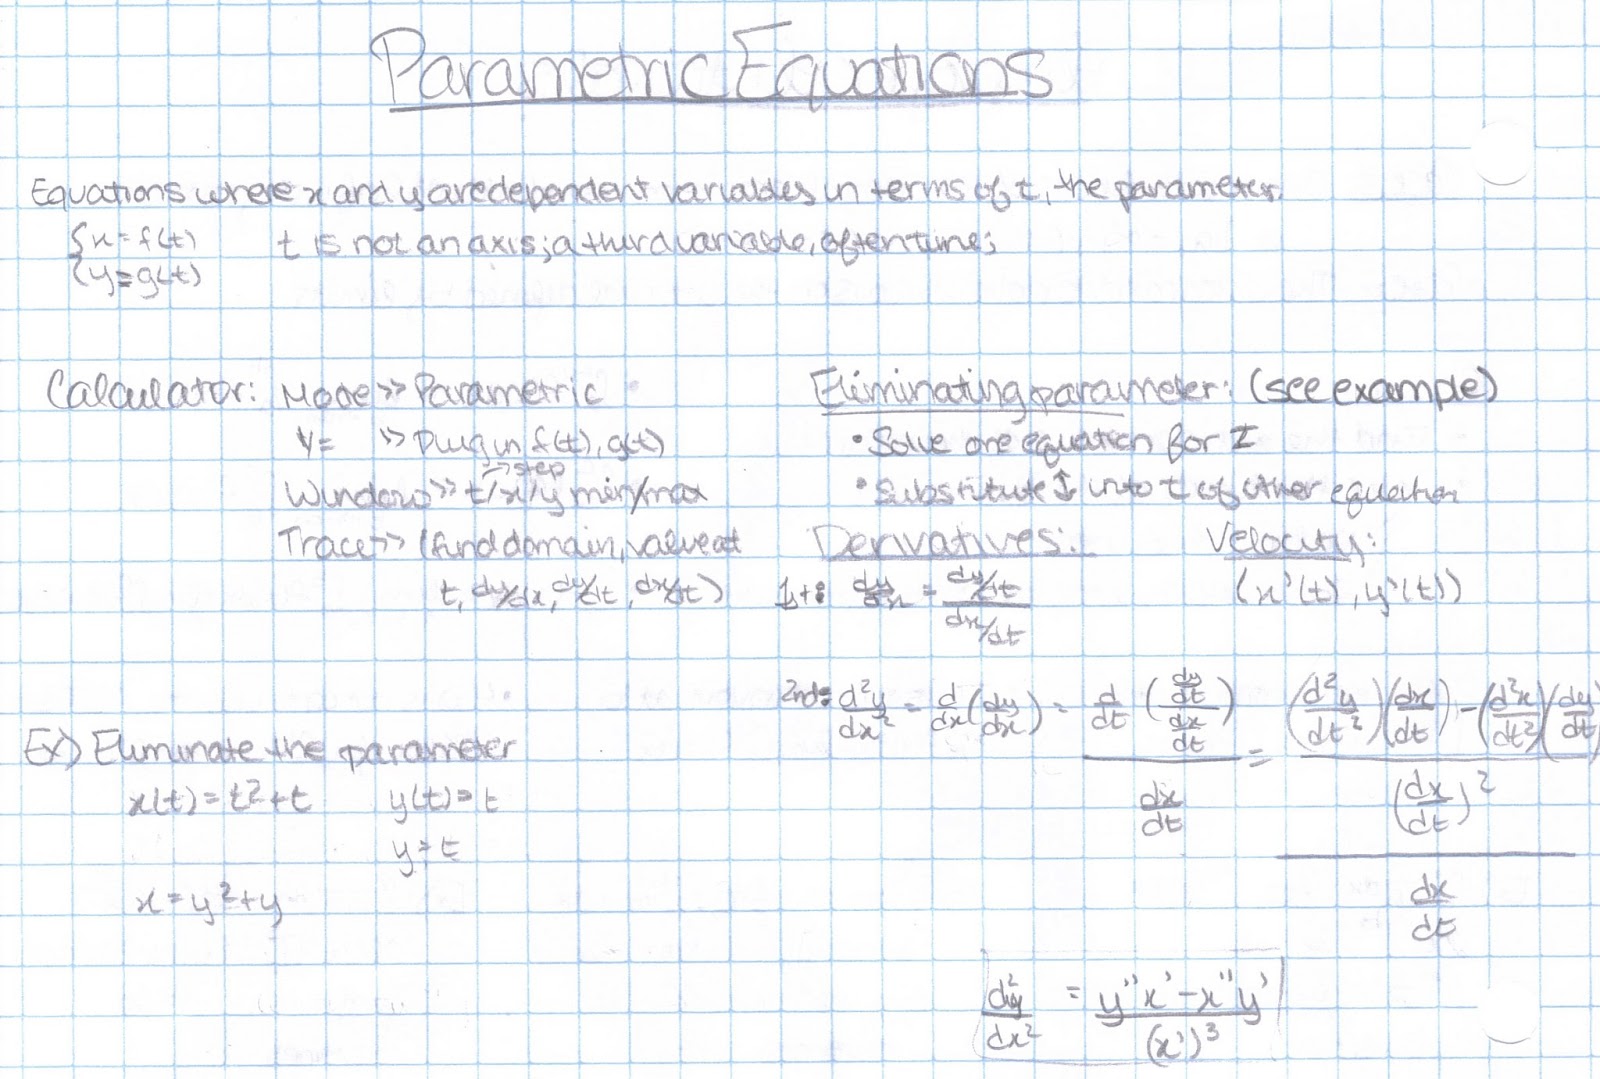 Parametric Equations
Equations where x and y are dependent variables in terms of t, the parameter.
{x = f(t)   t is not an axis; a third variable, often time;
{y = g(t)
Calculator: Mode >> Parametric
Y= >> Plug in f(t), g(t)
→ step
Window >> t/x/y min/max
Trace >> (find domain, value at
t, dy/dx, dy/dt, dx/dt)
Eliminating parameter: (see example)
• Solve one equation for t
• Substitute ↑ into t of other equation
Derivatives:
1st: dy/dx = (dy/dt)/(dx/dt)
Velocity:
(x'(t), y'(t))
2nd: d²y/dx² = d/dx (dy/dx) = (d/dt ((dy/dt)/(dx/dt)))/(dx/dt) = (((d²y/dt²)(dx/dt) - (d²x/dt²)(dy/dt))/(dx/dt)²)/(dx/dt)
d²y/dx² = (y''x' - x''y')/(x')³
Ex) Eliminate the parameter
x(t) = t² + t   y(t) = t
y = t
x = y² + y